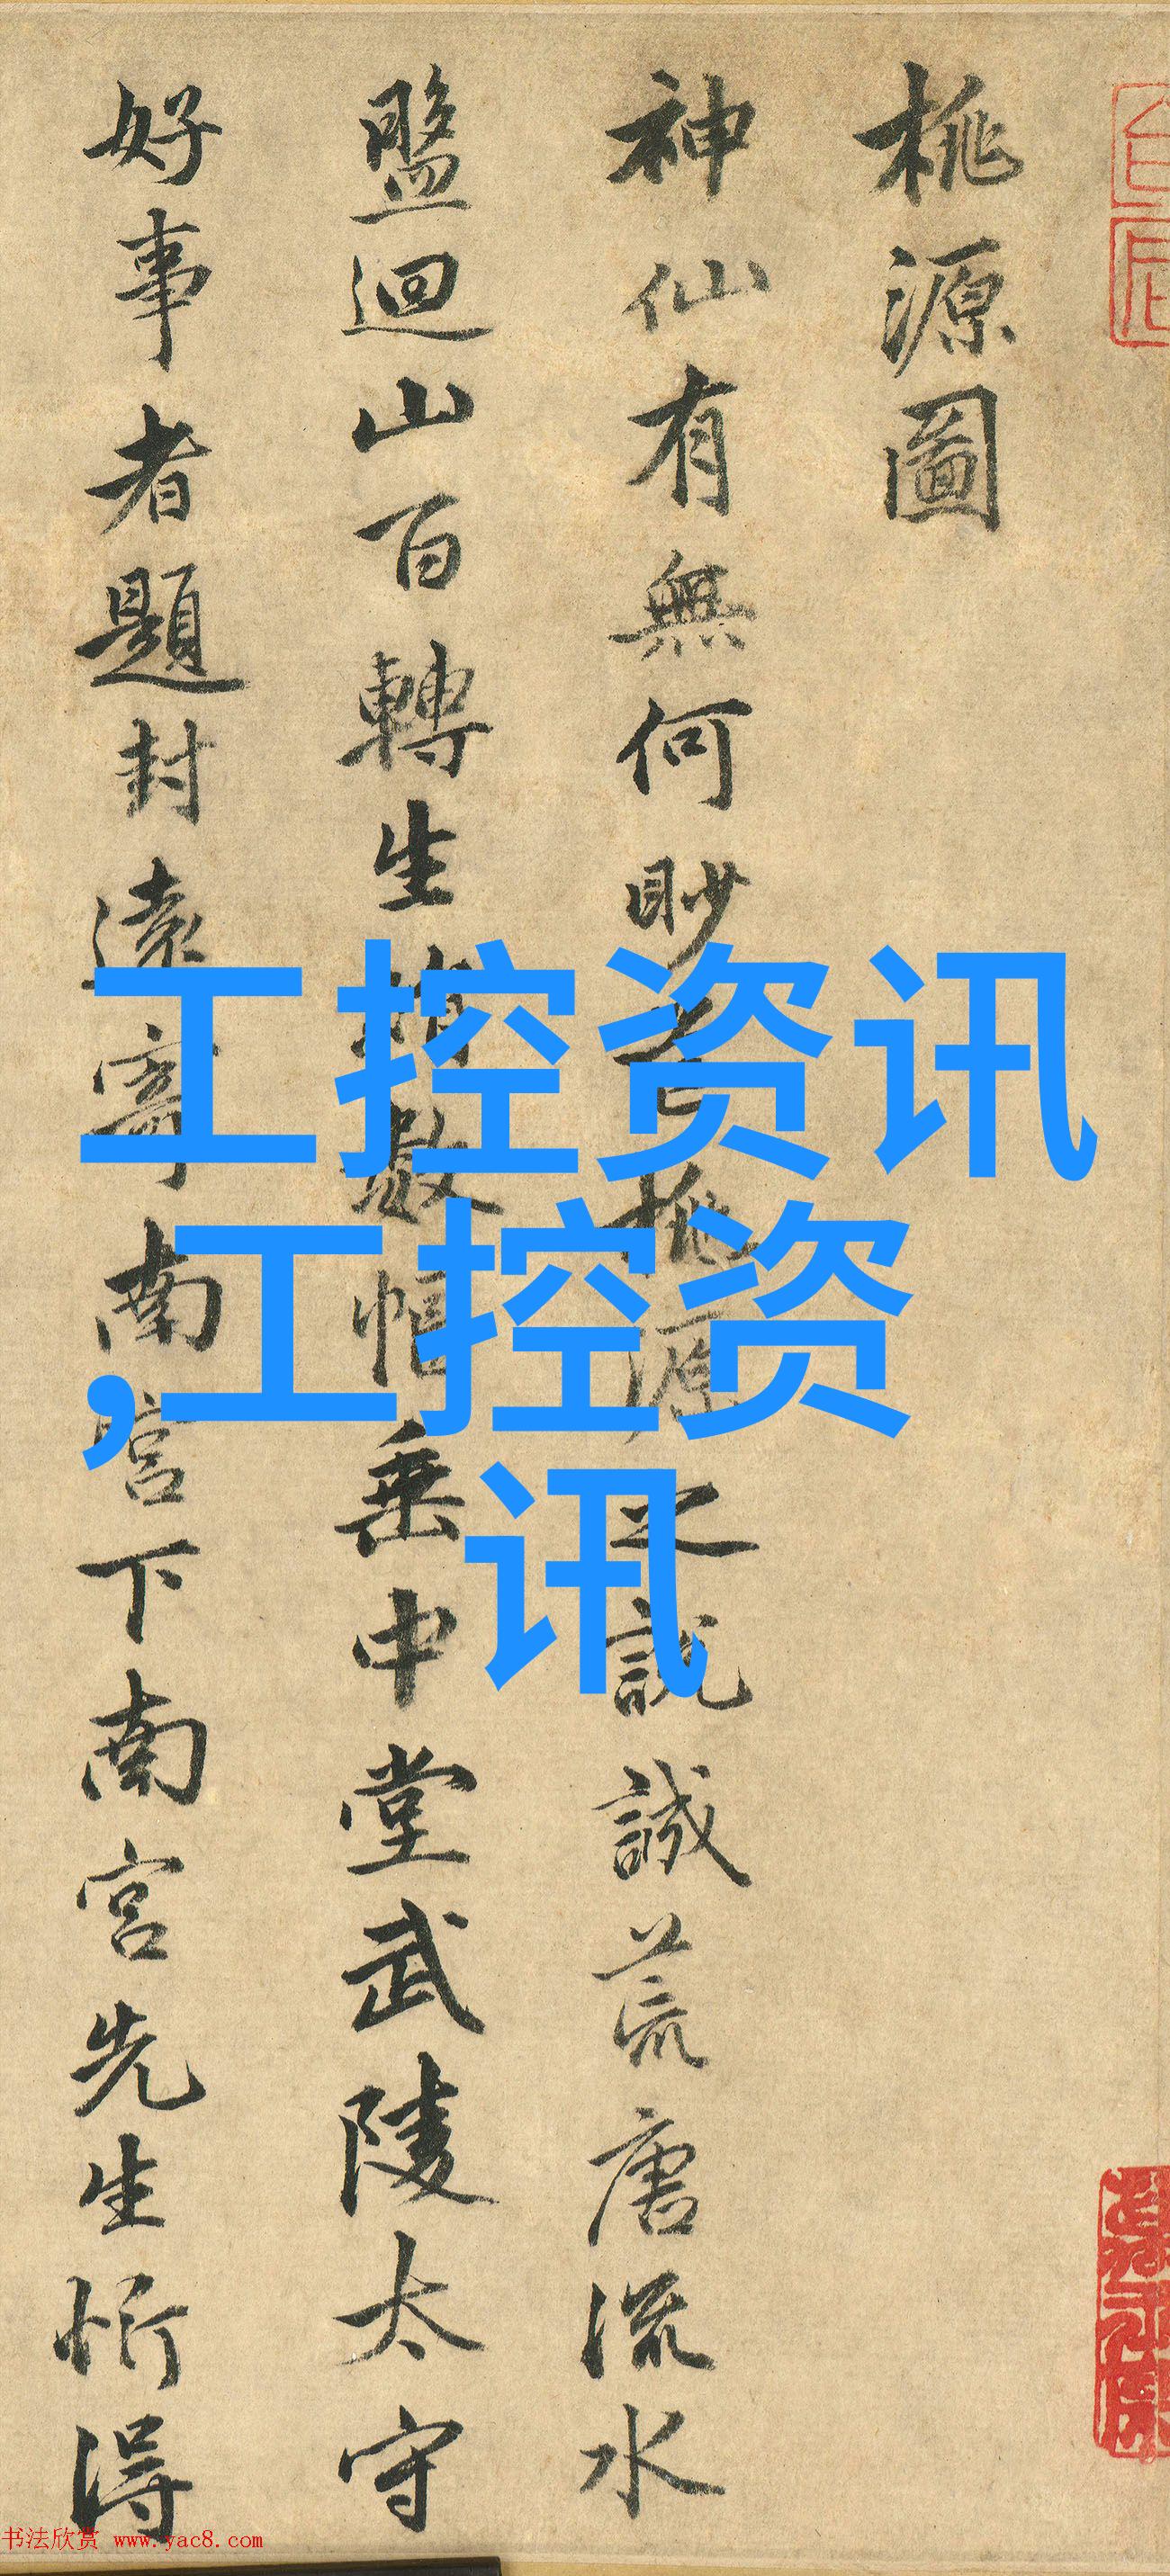 桃源圖
神仙有無何眇芒桃源之說誠荒唐流水
盤迴山百轉生綃數幅垂中堂武陵太守
好事者題封遠寄南宮下南宮先生忻得
工控资讯
,工控资
讯
书法欣赏 www.yac8.com